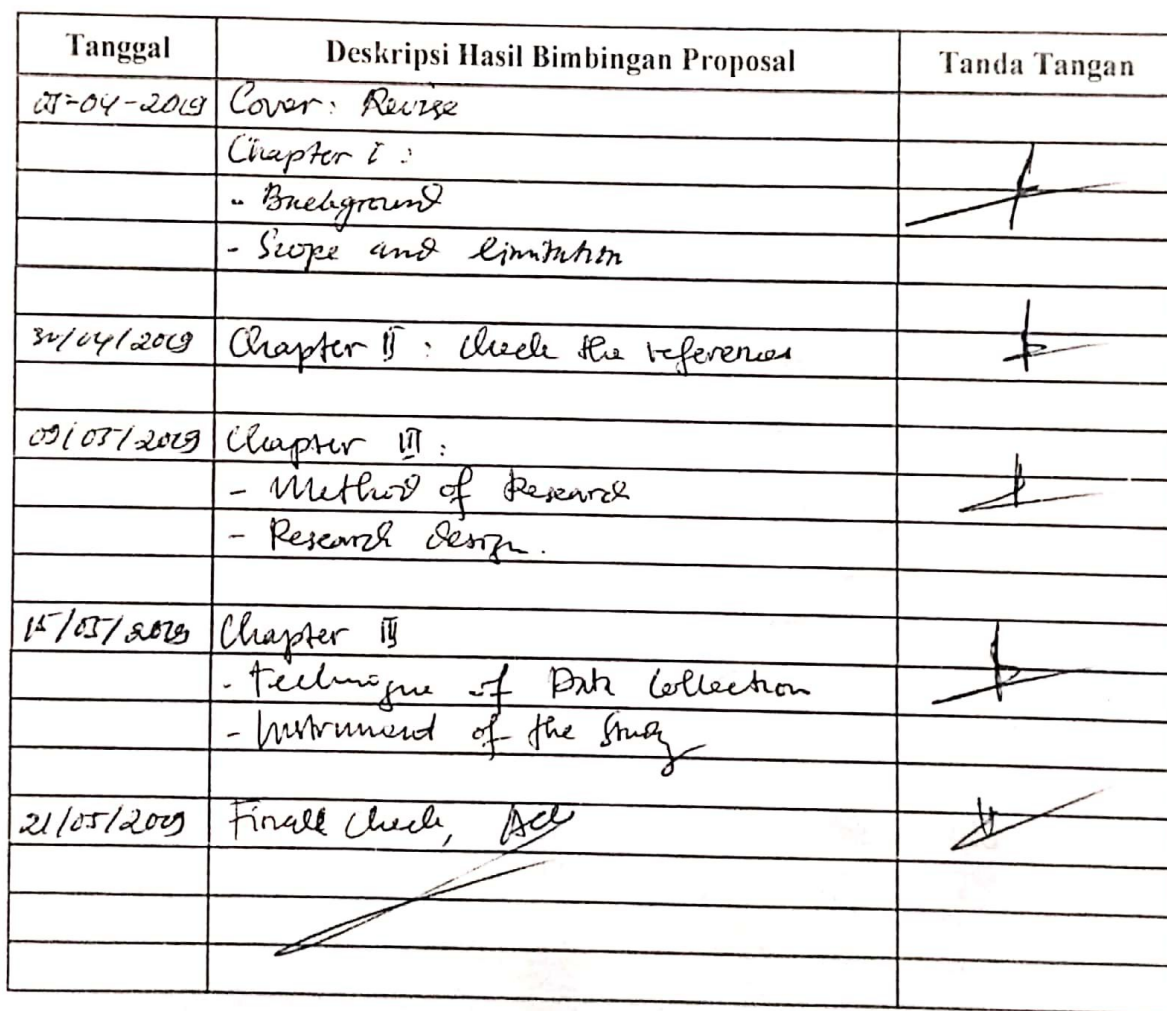 Tanggal Deskripsi Hasil Bimbingan Proposal Tanda Tangan
05-04-2019 Cover: Revise
Chapter I :
- Background
- Scope and limitation
30/04/2019 Chapter II : Check the references
09/05/2019 Chapter III :
- Method of Research
- Research design.
15/05/2019 Chapter III
- Technique of Data Collection
- Instrument of the Study
21/05/2019 Finall Check, Acc